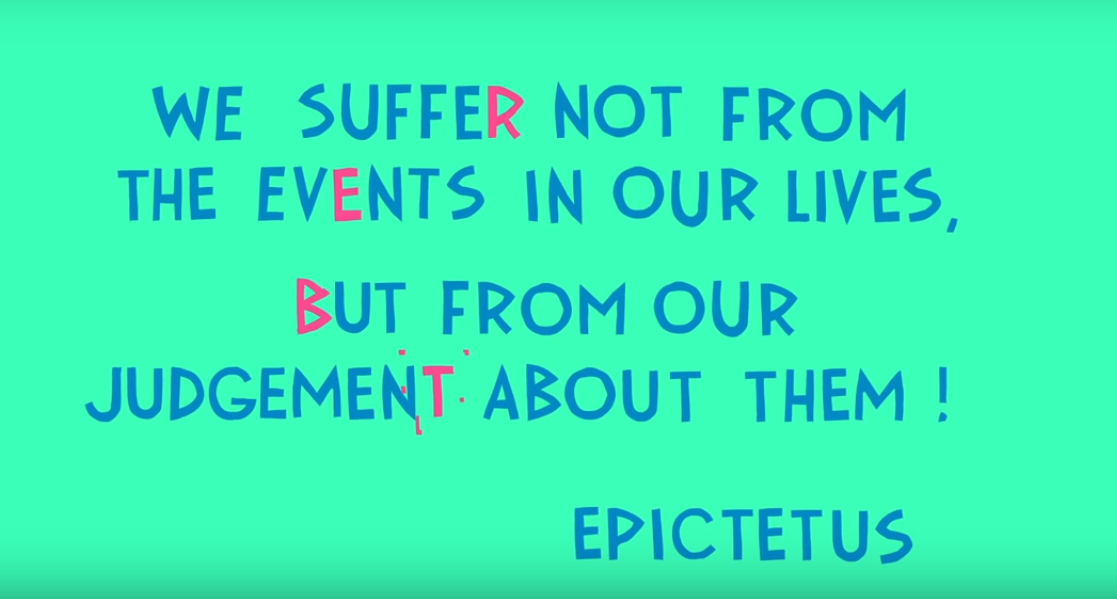 WE SUFFER NOT FROM
THE EVENTS IN OUR LIVES,
BUT FROM OUR
JUDGEMENT ABOUT THEM !
EPICTETUS